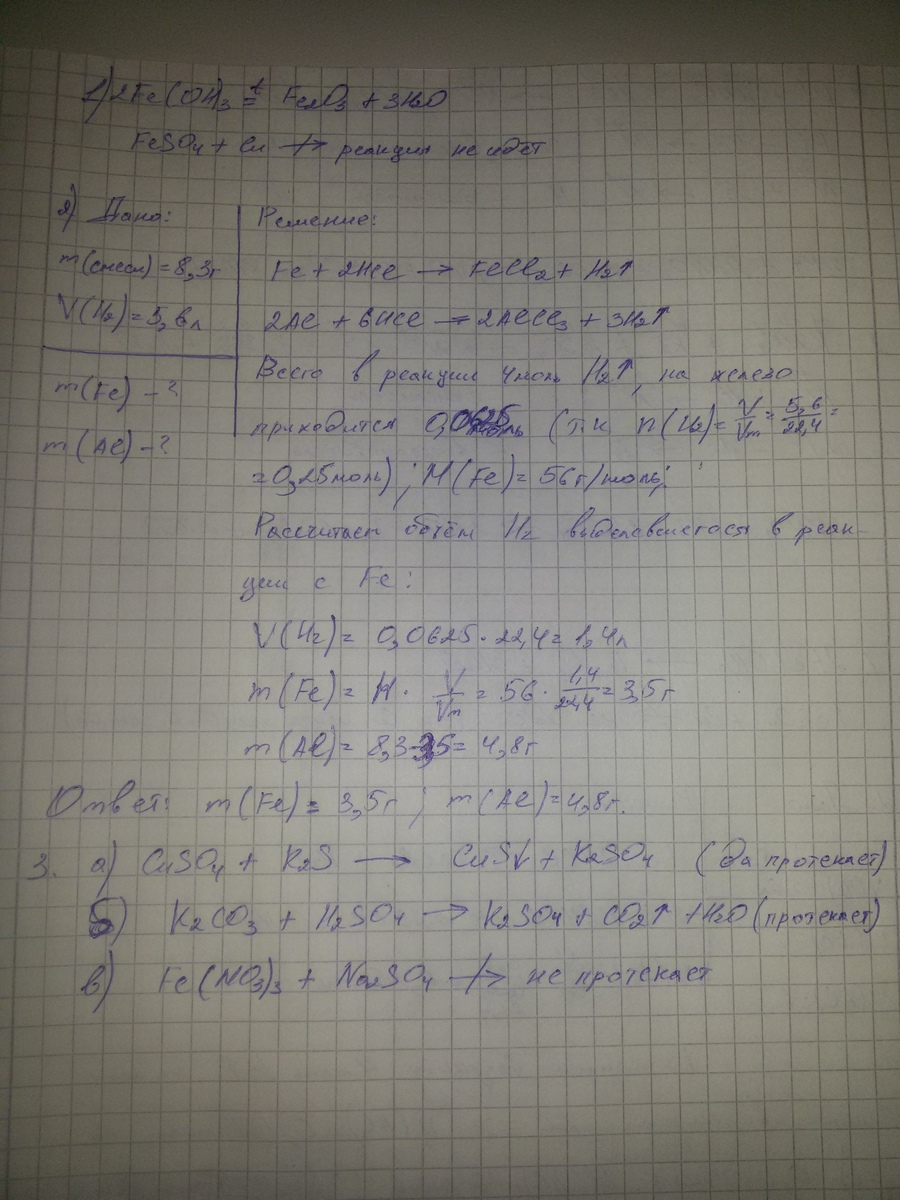 1) 2Fe(OH)3 t= Fe2O3 + 3H2O
FeSO4 + Cu -/-> реакция не идет
2) Дано:
m(смеси) = 8,3г
V(H2) = 5,6л
m(Fe) - ?
m(Al) - ?
Решение:
Fe + 2HCl → FeCl2 + H2↑
2Al + 6HCl → 2AlCl3 + 3H2↑
Всего в реакции 4моль H2↑, на железо
приходится 0,0625 моль (т.к n(H2) = V/Vm = 5,6/22,4 =
= 0,25моль); M(Fe) = 56г/моль;
Рассчитаем объём H2 выделившегося в реак-
ции с Fe:
V(H2) = 0,0625 · 22,4 = 1,4л
m(Fe) = M · V/Vm = 56 · 1,4/22,4 = 3,5г
m(Al) = 8,3-3,5 = 4,8г
Ответ: m(Fe) = 3,5г ; m(Al) = 4,8г.
3. а) CuSO4 + K2S → CuS↓ + K2SO4 (да протекает)
б) K2CO3 + H2SO4 → K2SO4 + CO2↑ + H2O (протекает)
в) Fe(NO3)3 + Na2SO4 -/-> не протекает